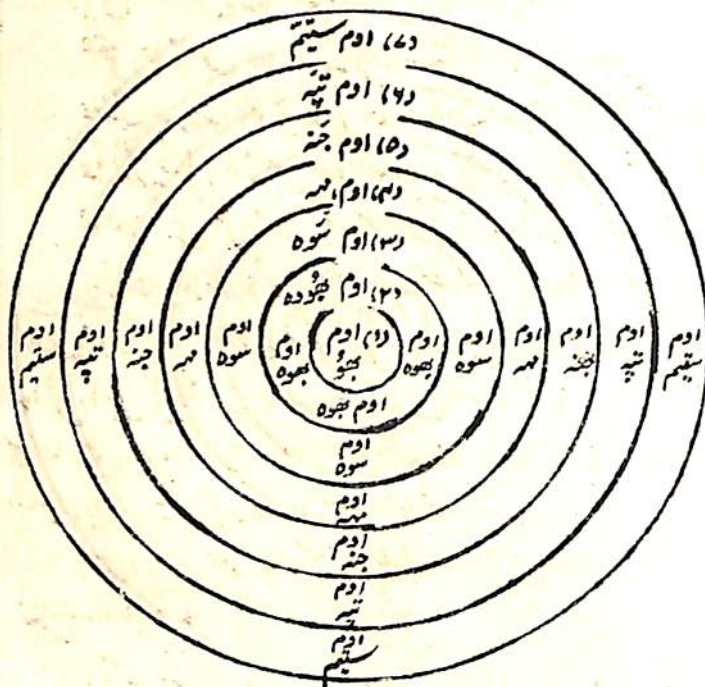 (۷) اوم ستیّم
(۶) اوم تپَہ
(۵) اوم جَنہ
(۴) اوم مہہ
(۳) اوم سَوہ
(۲) اوم بھُووہ
(۱) اوم
بھوُ
اوم
ستیم
اوم
تپہ
اوم
جنہ
اوم
مہہ
اوم
سوہ
اوم
بھوہ
اوم
بھوہ
اوم
سوہ
اوم
مہہ
اوم
جنہ
اوم
تپہ
اوم
ستیم
اوم بھوہ
اوم
سوہ
اوم
مہہ
اوم
جنہ
اوم
تپہ
اوم
ستیم